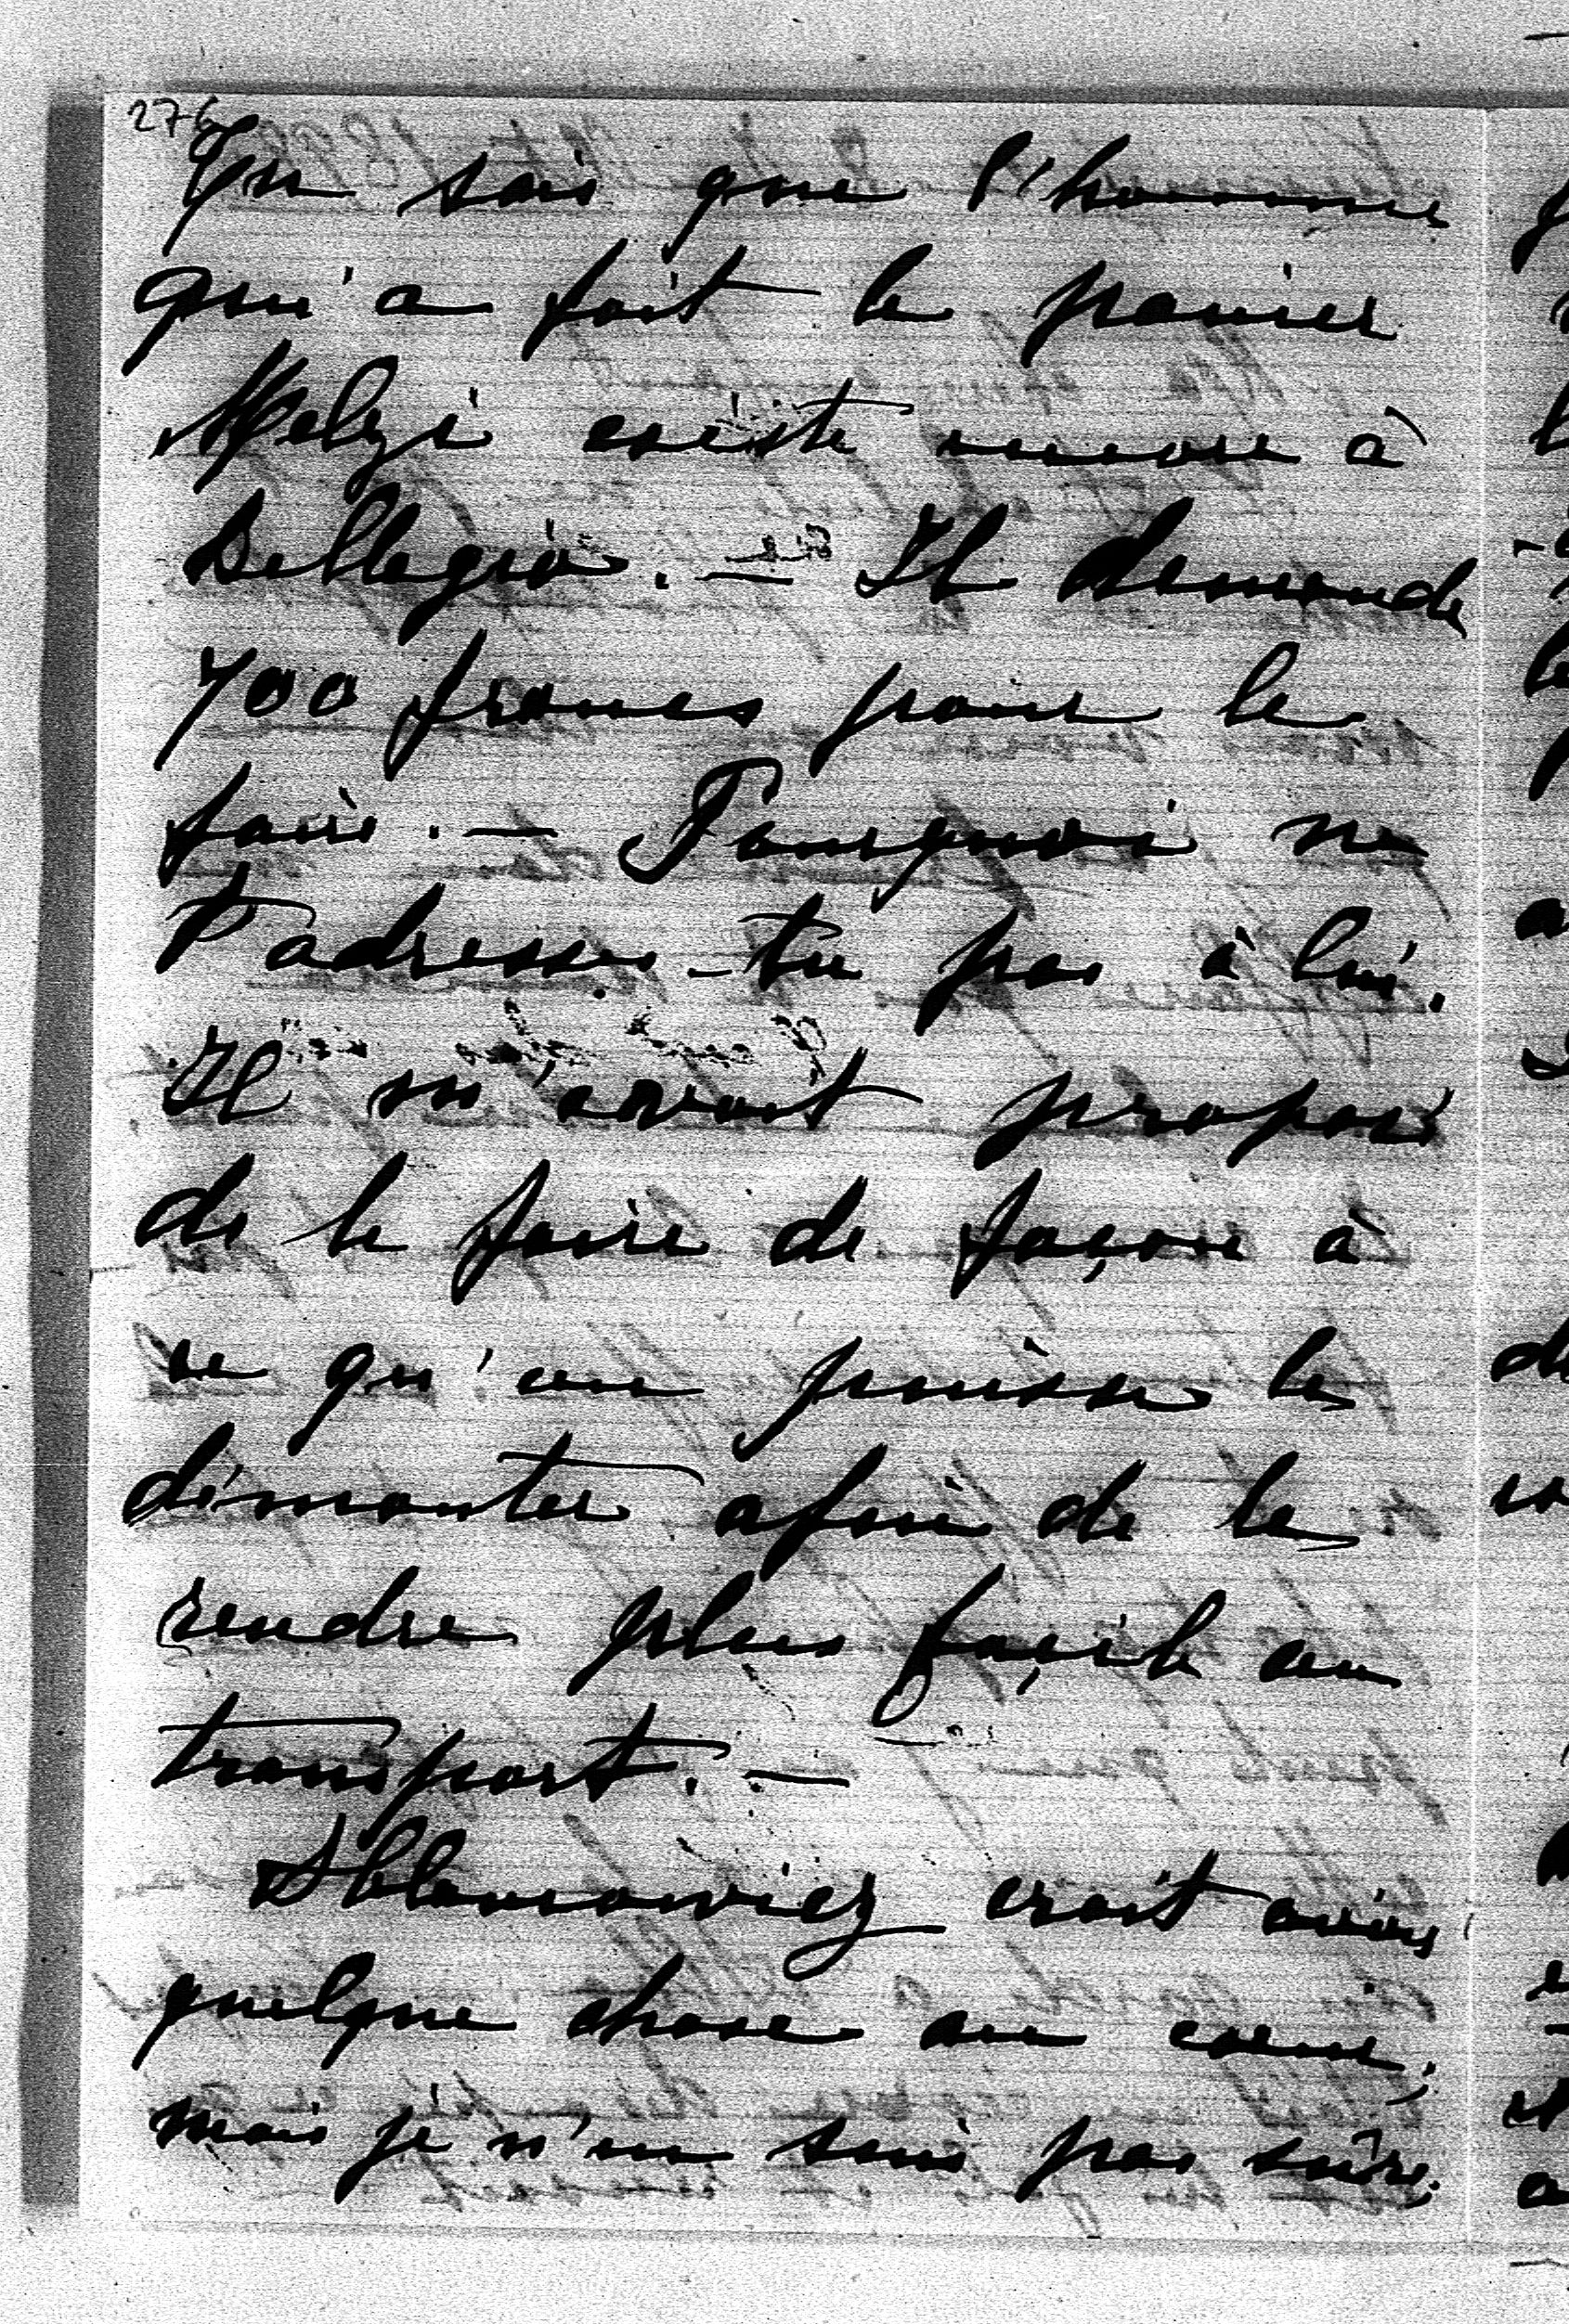 276
Tu sais que l'homme
qui a fait le panier
Melzi existe encore à
Bellagio. — Il demande
700 francs pour le
faire. — Pourquoi ne
t'adresses-tu pas à lui.
Il m'avait proposé
de le faire de façon à
ce qu'on puisse le
démonter afin de le
rendre plus façile au
transport. —
croit avoir
quelque chose au coeur;
mais je n'en suis pas sûre.